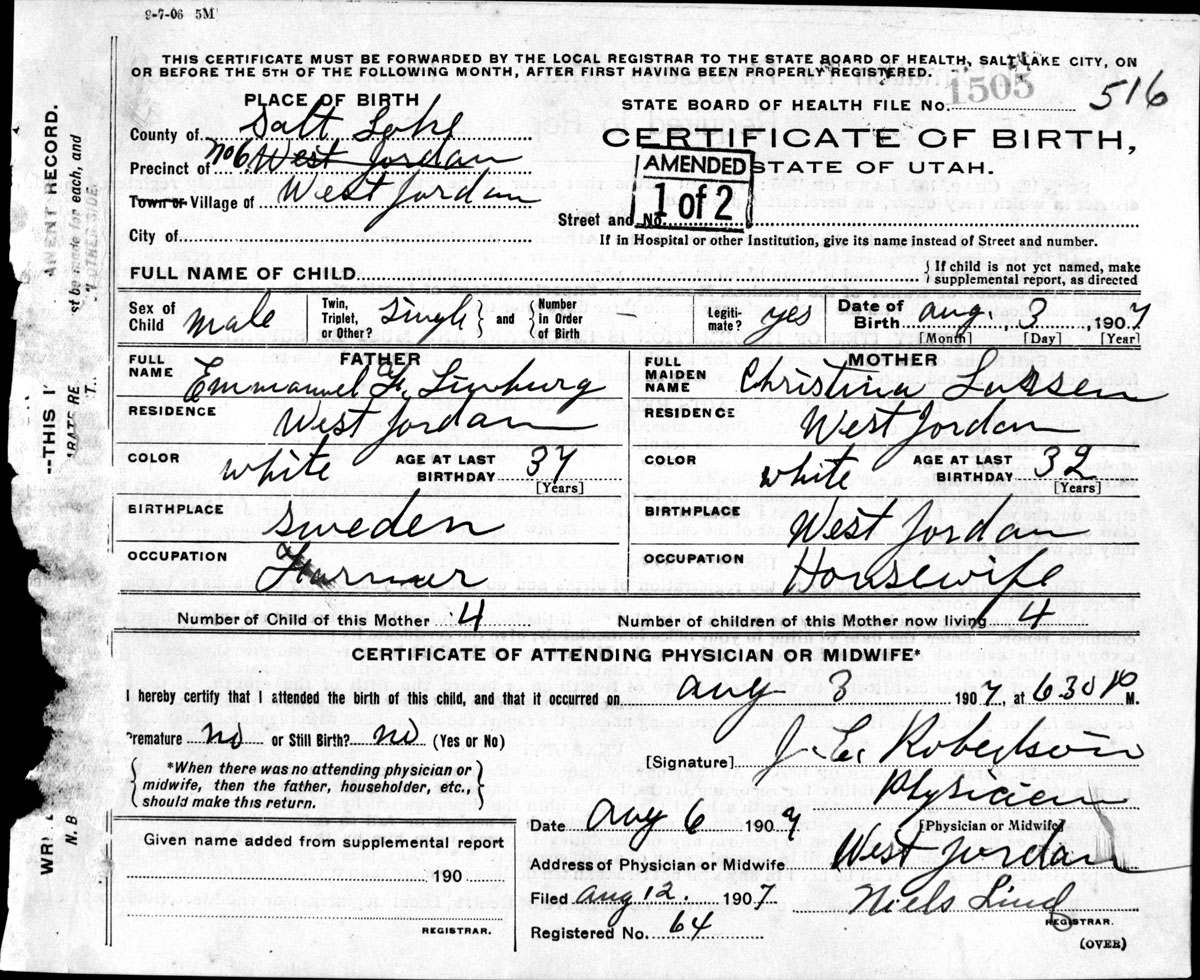 9-7-06 5M
THIS CERTIFICATE MUST BE FORWARDED BY THE LOCAL REGISTRAR TO THE STATE BOARD OF HEALTH, SALT LAKE CITY, ON
OR BEFORE THE 5TH OF THE FOLLOWING MONTH, AFTER FIRST HAVING BEEN PROPERLY REGISTERED.
PLACE OF BIRTH
STATE BOARD OF HEALTH FILE No. 1505 516
County of Salt Lake
CERTIFICATE OF BIRTH,
Precinct of No 6. West Jordan
AMENDED
STATE OF UTAH.
Town or Village of West Jordan
1 of 2
Street and No.
City of
If in Hospital or other Institution, give its name instead of Street and number.
FULL NAME OF CHILD
If child is not yet named, make
supplemental report, as directed
Sex of Child male Twin, Triplet, or Other? Single and Number in Order of Birth – Legiti-mate? yes Date of Birth Aug. 3, 1907
[Month] [Day] [Year]
FATHER
MOTHER
FULL NAME Emmanuel
FULL MAIDEN NAME Christina
RESIDENCE West Jordan
RESIDENCE West Jordan
COLOR white AGE AT LAST BIRTHDAY 37 [Years]
COLOR white AGE AT LAST BIRTHDAY 32 [Years]
BIRTHPLACE Sweden
BIRTHPLACE West Jordan
OCCUPATION Farmer
OCCUPATION Housewife
Number of Child of this Mother 4 Number of children of this Mother now living 4
CERTIFICATE OF ATTENDING PHYSICIAN OR MIDWIFE*
I hereby certify that I attended the birth of this child, and that it occurred on Aug 3 1907, at 6.30 P M.
Premature no or Still Birth? no (Yes or No)
[Signature] J. C. Robertson
*When there was no attending physician or
midwife, then the father, householder, etc.,
should make this return.
Physician
[Physician or Midwife]
Date Aug 6 1907
Given name added from supplemental report
Address of Physician or Midwife West Jordan
190
Filed Aug 12. 1907 Niels Lind
REGISTRAR.
Registered No. 64
REGISTRAR.
(OVER)
--THIS I
AMENT RECORD.
ARATE RE
st be made for each, and
OTHER SIDE.
WRI
N. B